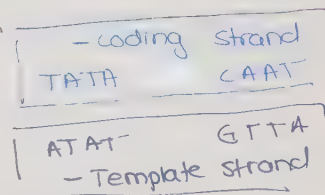 - coding strand
TATA CAAT
ATAT GTTA
- Template strand